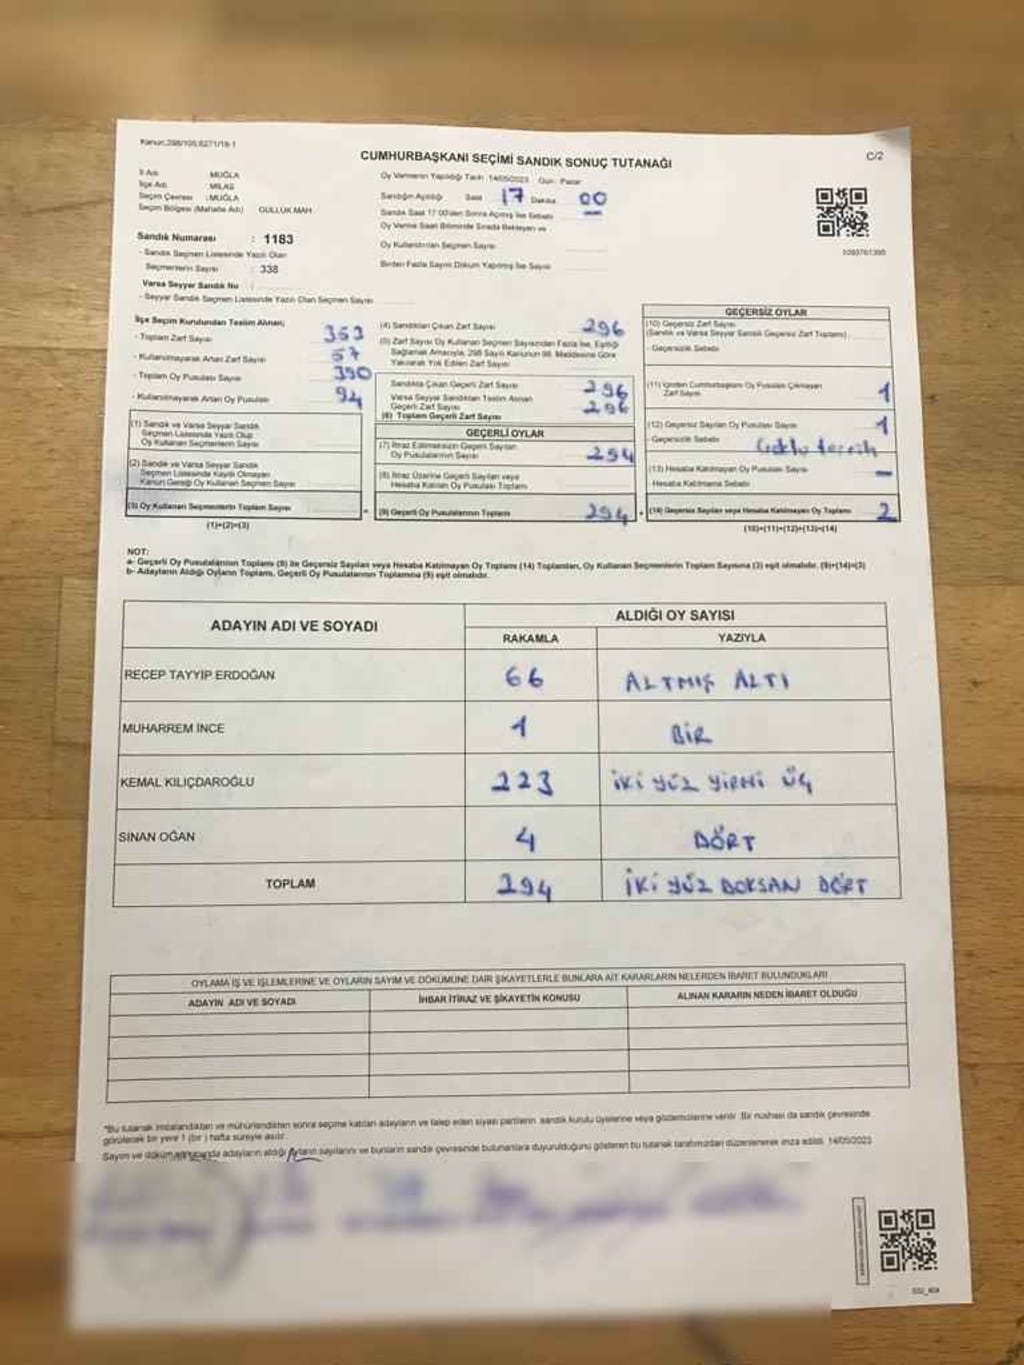 Kanun:298/105,6271/19-1
CUMHURBAŞKANI SEÇİMİ SANDIK SONUÇ TUTANAĞI
C/2
İl Adı : MUĞLA
İlçe Adı : MİLAS
Seçim Çevresi : MUĞLA
Seçim Bölgesi (Mahalle Adı) GÜLLÜK MAH.
Oy Vermenin Yapıldığı Tarih : 14/05/2023 Gün : Pazar
Sandığın Açıldığı Saat 17 Dakika 00
Sandık Saat 17:00'den Sonra Açılmış İse Sebebi
Oy Verme Saati Bitiminde Sırada Bekleyen ve
Oy Kullandırılan Seçmen Sayısı
Birden Fazla Sayım Döküm Yapılmış İse Sayısı
1093761395
Sandık Numarası : 1183
- Sandık Seçmen Listesinde Yazılı Olan
Seçmenlerin Sayısı : 338
Varsa Seyyar Sandık No :
- Seyyar Sandık Seçmen Listesinde Yazılı Olan Seçmen Sayısı
İlçe Seçim Kurulundan Teslim Alınan;
- Toplam Zarf Sayısı 353
- Kullanılmayarak Artan Zarf Sayısı 57
- Toplam Oy Pusulası Sayısı 390
- Kullanılmayarak Artan Oy Pusulası 94
(1) Sandık ve Varsa Seyyar Sandık
Seçmen Listesinde Yazılı Olup
Oy Kullanan Seçmenlerin Sayısı
(2) Sandık ve Varsa Seyyar Sandık
Seçmen Listesinde Kayıtlı Olmayan
Kanun Gereği Oy Kullanan Seçmen Sayısı
(3) Oy Kullanan Seçmenlerin Toplam Sayısı
(1)+(2)=(3)
(4) Sandıktan Çıkan Zarf Sayısı 296
(5) Zarf Sayısı Oy Kullanan Seçmen Sayısından Fazla İse, Eşitliği
Sağlamak Amacıyla, 298 Sayılı Kanunun 98. Maddesine Göre
Yakılarak Yok Edilen Zarf Sayısı
Sandıkta Çıkan Geçerli Zarf Sayısı 296
Varsa Seyyar Sandıktan Teslim Alınan
Geçerli Zarf Sayısı
(6) Toplam Geçerli Zarf Sayısı 296
GEÇERLİ OYLAR
(7) İtiraz Edilmeksizin Geçerli Sayılan
Oy Pusulalarının Sayısı 294
(8) İtiraz Üzerine Geçerli Sayılan veya
Hesaba Katılan Oy Pusulası Toplamı
(9) Geçerli Oy Pusulalarının Toplamı 294
GEÇERSİZ OYLAR
(10) Geçersiz Zarf Sayısı
(Sandık ve Varsa Seyyar Sandık Geçersiz Zarf Toplamı)
- Geçersizlik Sebebi
(11) İçinden Cumhurbaşkanı Oy Pusulası Çıkmayan
Zarf Sayısı 1
(12) Geçersiz Sayılan Oy Pusulası Sayısı 1
- Geçersizlik Sebebi Çoklu tercih
(13) Hesaba Katılmayan Oy Pusulası Sayısı -
- Hesaba Katılmama Sebebi
(14) Geçersiz Sayılan veya Hesaba Katılmayan Oy Toplamı 2
(10)+(11)+(12)+(13)=(14)
NOT:
a- Geçerli Oy Pusulalarının Toplamı (9) ile Geçersiz Sayılan veya Hesaba Katılmayan Oy Toplamı (14) Toplamları, Oy Kullanan Seçmenlerin Toplam Sayısına (3) eşit olmalıdır. (9)+(14)=(3)
b- Adayların Aldığı Oyların Toplamı, Geçerli Oy Pusulalarının Toplamına (9) eşit olmalıdır.
ADAYIN ADI VE SOYADI
ALDIĞI OY SAYISI
RAKAMLA YAZIYLA
RECEP TAYYİP ERDOĞAN 66 ALTMIŞ ALTI
MUHARREM İNCE 1 BİR
KEMAL KILIÇDAROĞLU 223 İKİ YÜZ YİRMİ ÜÇ
SİNAN OĞAN 4 DÖRT
TOPLAM 294 İKİ YÜZ DOKSAN DÖRT
OYLAMA İŞ VE İŞLEMLERİNE VE OYLARIN SAYIM VE DÖKÜMÜNE DAİR ŞİKAYETLERLE BUNLARA AİT KARARLARIN NELERDEN İBARET BULUNDUKLARI
ADAYIN ADI VE SOYADI İHBAR İTİRAZ VE ŞİKAYETİN KONUSU ALINAN KARARIN NEDEN İBARET OLDUĞU
*Bu tutanak imzalandıktan ve mühürlendikten sonra seçime katılan adayların ve talep eden siyasi partilerin sandık kurulu üyelerine veya gözlemcilerine verilir. Bir nüshası da sandık çevresinde
görülecek bir yere 1 (bir) hafta süreyle asılır.
Sayım ve döküm adayların aldığı oyların sayılarını ve bunların sandık çevresinde bulunanlara duyurulduğunu gösteren bu tutanak tarafımızdan düzenlenerek imza edildi. 14/05/2023